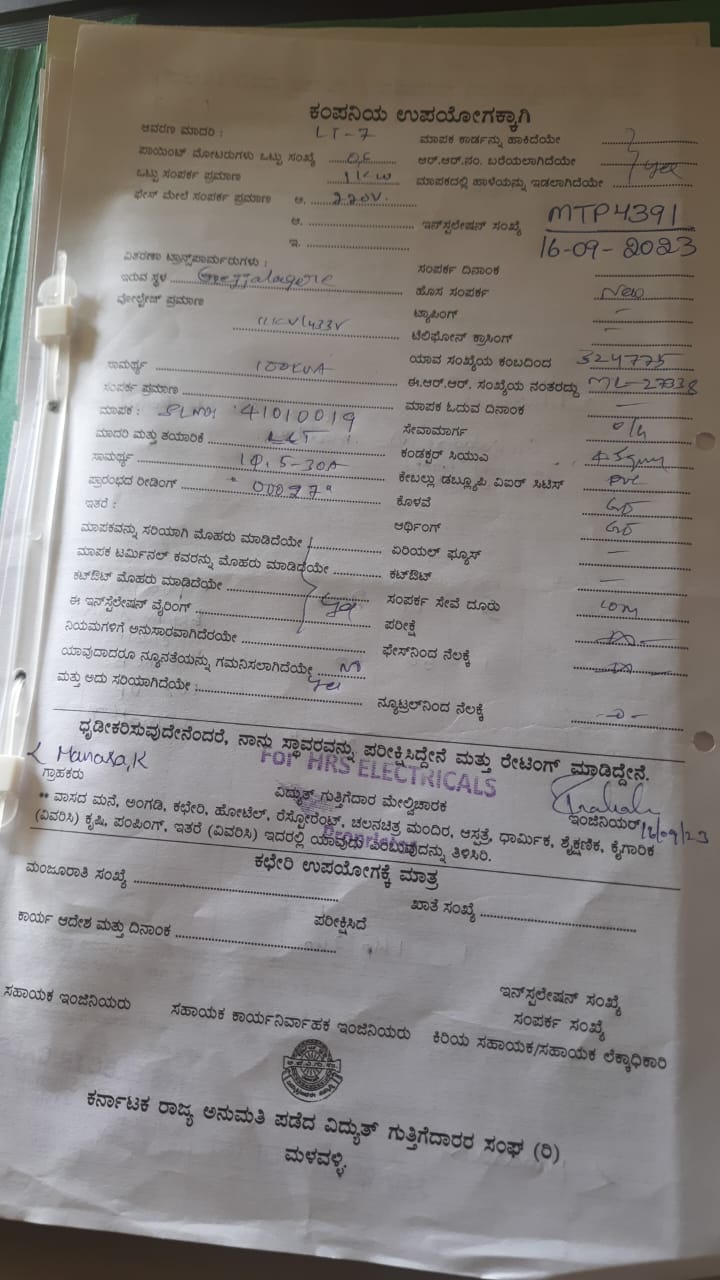 ಕಂಪನಿಯ ಉಪಯೋಗಕ್ಕಾಗಿ
ಆವರಣ ಮಾದರಿ : LT-7 ಮಾಪಕ ಕಾರ್ಡನ್ನು ಹಾಕಿದೆಯೇ
ಪಾಯಿಂಟ್ ಮೋಟರುಗಳು ಒಟ್ಟು ಸಂಖ್ಯೆ ಆರ್.ಆರ್.ನಂ. ಬರೆಯಲಾಗಿದೆಯೇ yes
ಒಟ್ಟು ಸಂಪರ್ಕ ಪ್ರಮಾಣ 1KW ಮಾಪಕದಲ್ಲಿ ಹಾಳೆಯನ್ನು ಇಡಲಾಗಿದೆಯೇ
ಫೇಸ್ ಮೇಲೆ ಸಂಪರ್ಕ ಪ್ರಮಾಣ ಆ. 220V.
ಆ. ಇನ್‌ಸ್ಟಲೇಷನ್ ಸಂಖ್ಯೆ MTP4391
ಇ. 16-09-2023
ವಿತರಣಾ ಟ್ರಾನ್ಸ್‌ಫಾರ್ಮರುಗಳು : ಸಂಪರ್ಕ ದಿನಾಂಕ
ಇರುವ ಸ್ಥಳ ಹೊಸ ಸಂಪರ್ಕ New
ವೋಲ್ಟೇಜ್ ಪ್ರಮಾಣ 11KV/433V ಟ್ಯಾಪಿಂಗ್ -
ಟೆಲಿಫೋನ್ ಕ್ರಾಸಿಂಗ್ -
ಸಾಮರ್ಥ್ಯ 100KVA ಯಾವ ಸಂಖ್ಯೆಯ ಕಂಬದಿಂದ 324775
ಸಂಪರ್ಕ ಪ್ರಮಾಣ ಈ.ಆರ್.ಆರ್. ಸಂಖ್ಯೆಯ ನಂತರದ್ದು ML-27338
ಮಾಪಕ : SLNO: 41010019 ಮಾಪಕ ಓದುವ ದಿನಾಂಕ -
ಮಾದರಿ ಮತ್ತು ತಯಾರಿಕೆ L&T ಸೇವಾಮಾರ್ಗ O/H
ಸಾಮರ್ಥ್ಯ 1Φ, 5-30A ಕಂಡಕ್ಟರ್ ಸಿಯುಎ 4 Sqmm
ಪ್ರಾರಂಭದ ರೀಡಿಂಗ್ "00027" ಕೇಬಲ್ಲು ಡಬ್ಲ್ಯೂಪಿ ವಿಐರ್ ಸಿಟಿಸ್ PVC
ಇತರೆ : ಕೊಳವೆ
ಆರ್ಥಿಂಗ್
ಮಾಪಕವನ್ನು ಸರಿಯಾಗಿ ಮೊಹರು ಮಾಡಿದೆಯೇ ಏರಿಯಲ್ ಫ್ಯೂಸ್ -
ಮಾಪಕ ಟರ್ಮಿನಲ್ ಕವರನ್ನು ಮೊಹರು ಮಾಡಿದೆಯೇ ಕಟ್‌ಔಟ್ -
ಕಟ್‌ಔಟ್ ಮೊಹರು ಮಾಡಿದೆಯೇ yes ಸಂಪರ್ಕ ಸೇವೆ ದೂರು 10m
ಈ ಇನ್‌ಸ್ಟಲೇಷನ್ ವೈರಿಂಗ್ ಪರೀಕ್ಷೆ
ನಿಯಮಗಳಿಗೆ ಅನುಸಾರವಾಗಿದೆರಯೇ ಫೇಸ್‌ನಿಂದ ನೆಲಕ್ಕೆ
ಯಾವುದಾದರೂ ನ್ಯೂನತೆಯನ್ನು ಗಮನಿಸಲಾಗಿದೆಯೇ
ಮತ್ತು ಅದು ಸರಿಯಾಗಿದೆಯೇ : yes ನ್ಯೂಟ್ರಲ್‌ನಿಂದ ನೆಲಕ್ಕೆ -0-
ಧೃಡೀಕರಿಸುವುದೇನೆಂದರೆ, ನಾನು ಸ್ಥಾವರವನ್ನು ಪರೀಕ್ಷಿಸಿದ್ದೇನೆ ಮತ್ತು ರೇಟಿಂಗ್ ಮಾಡಿದ್ದೇನೆ.
Manasa.K For HRS ELECTRICALS
ಗ್ರಾಹಕರು ವಿದ್ಯುತ್ ಗುತ್ತಿಗೆದಾರ ಮೇಲ್ವಿಚಾರಕ ಇಂಜಿನಿಯರ್ 16/09/23
** ವಾಸದ ಮನೆ, ಅಂಗಡಿ, ಕಛೇರಿ, ಹೋಟೆಲ್, ರೆಸ್ಟೋರೆಂಟ್, ಚಲನಚಿತ್ರ ಮಂದಿರ, ಆಸ್ಪತ್ರೆ, ಧಾರ್ಮಿಕ, ಶೈಕ್ಷಣಿಕ, ಕೈಗಾರಿಕ
(ವಿವರಿಸಿ) ಕೃಷಿ, ಪಂಪಿಂಗ್, ಇತರೆ (ವಿವರಿಸಿ) ಇದರಲ್ಲಿ ಯಾವುದು ಎಂಬುವುದನ್ನು ತಿಳಿಸಿರಿ.
Proprietor
ಕಛೇರಿ ಉಪಯೋಗಕ್ಕೆ ಮಾತ್ರ
ಮಂಜೂರಾತಿ ಸಂಖ್ಯೆ ಖಾತೆ ಸಂಖ್ಯೆ
ಕಾರ್ಯ ಆದೇಶ ಮತ್ತು ದಿನಾಂಕ ಪರೀಕ್ಷಿಸಿದೆ
ಇನ್‌ಸ್ಟಲೇಷನ್ ಸಂಖ್ಯೆ
ಸಂಪರ್ಕ ಸಂಖ್ಯೆ
ಸಹಾಯಕ ಇಂಜಿನಿಯರು ಸಹಾಯಕ ಕಾರ್ಯನಿರ್ವಾಹಕ ಇಂಜಿನಿಯರು ಕಿರಿಯ ಸಹಾಯಕ/ಸಹಾಯಕ ಲೆಕ್ಕಾಧಿಕಾರಿ
ಕರ್ನಾಟಕ ರಾಜ್ಯ ಅನುಮತಿ ಪಡೆದ ವಿದ್ಯುತ್ ಗುತ್ತಿಗೆದಾರರ ಸಂಘ (ರಿ)
ಮಳವಳ್ಳಿ.